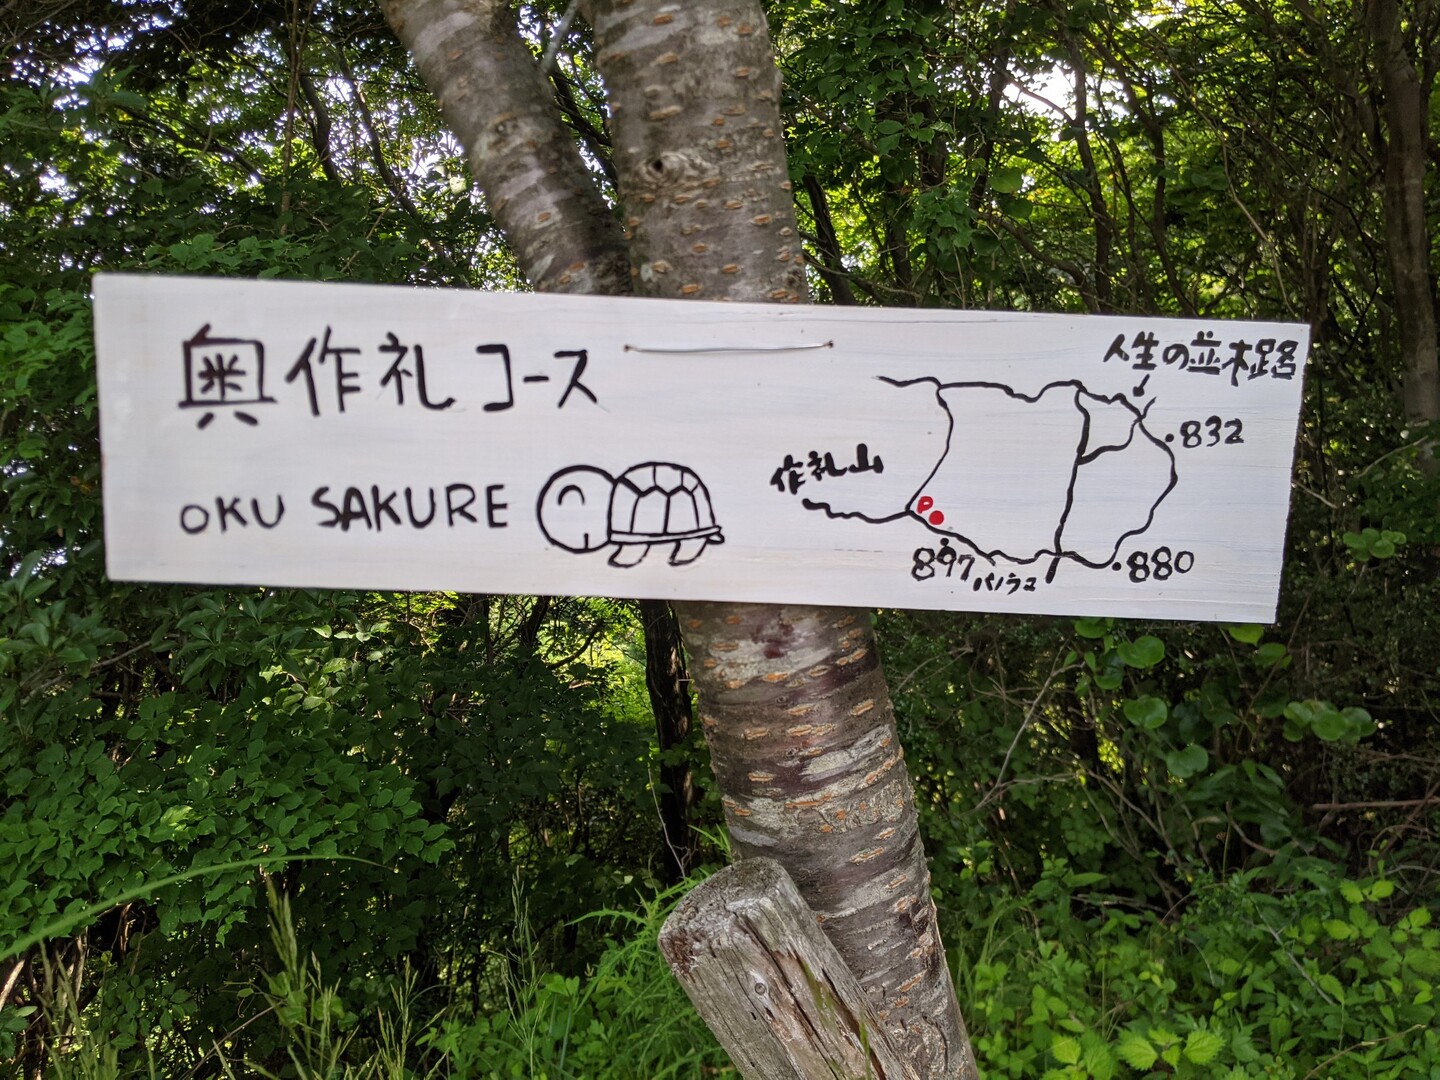 奥作礼コース
OKU SAKURE
人生の並木路
832
作礼山
P
897
パノラマ
880